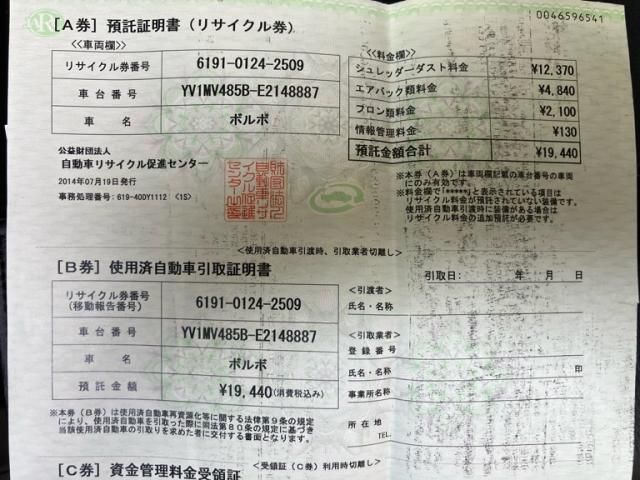 0046596541
[A券] 預託証明書(リサイクル券)
<<車両欄>>
リサイクル券番号 6191-0124-2509
車台番号 YV1MV485B-E2148887
車名 ボルボ
公益財団法人
自動車リサイクル促進センター
2014年07月19日発行
事務処理番号:619-40DY1112 <1S>
<<料金欄>>
シュレッダーダスト料金 ¥12,370
エアバック類料金 ¥4,840
フロン類料金 ¥2,100
情報管理料金 ¥130
預託金額合計 ¥19,440
※本券(A券)は車両欄記載の車台番号の車両
にのみ有効です。
※料金欄で「*****」と表示されている項目は
リサイクル料金が預託されていない装備です。
使用済自動車引渡時に装備がある場合は
リサイクル料金の追加預託が必要です。
<使用済自動車引渡時、引取業者切離し>
[B券] 使用済自動車引取証明書
引取日: 年 月 日
リサイクル券番号
(移動報告番号) 6191-0124-2509
車台番号 YV1MV485B-E2148887
車名 ボルボ
預託金額 ¥19,440(消費税込み)
<引渡者>
氏名・名称
<引取業者>
登録番号
氏名・名称 印
事業所名称
所在地
TEL.
※本券(B券)は使用済自動車再資源化等に関する法律第9条の規定
により、使用済自動車を引取った際に同法第80条の規定に基づき
当該使用済自動車の引取りを求めた者に交付する書面となります。
<受領証(C券)利用時切離し>
[C券] 資金管理料金受領証